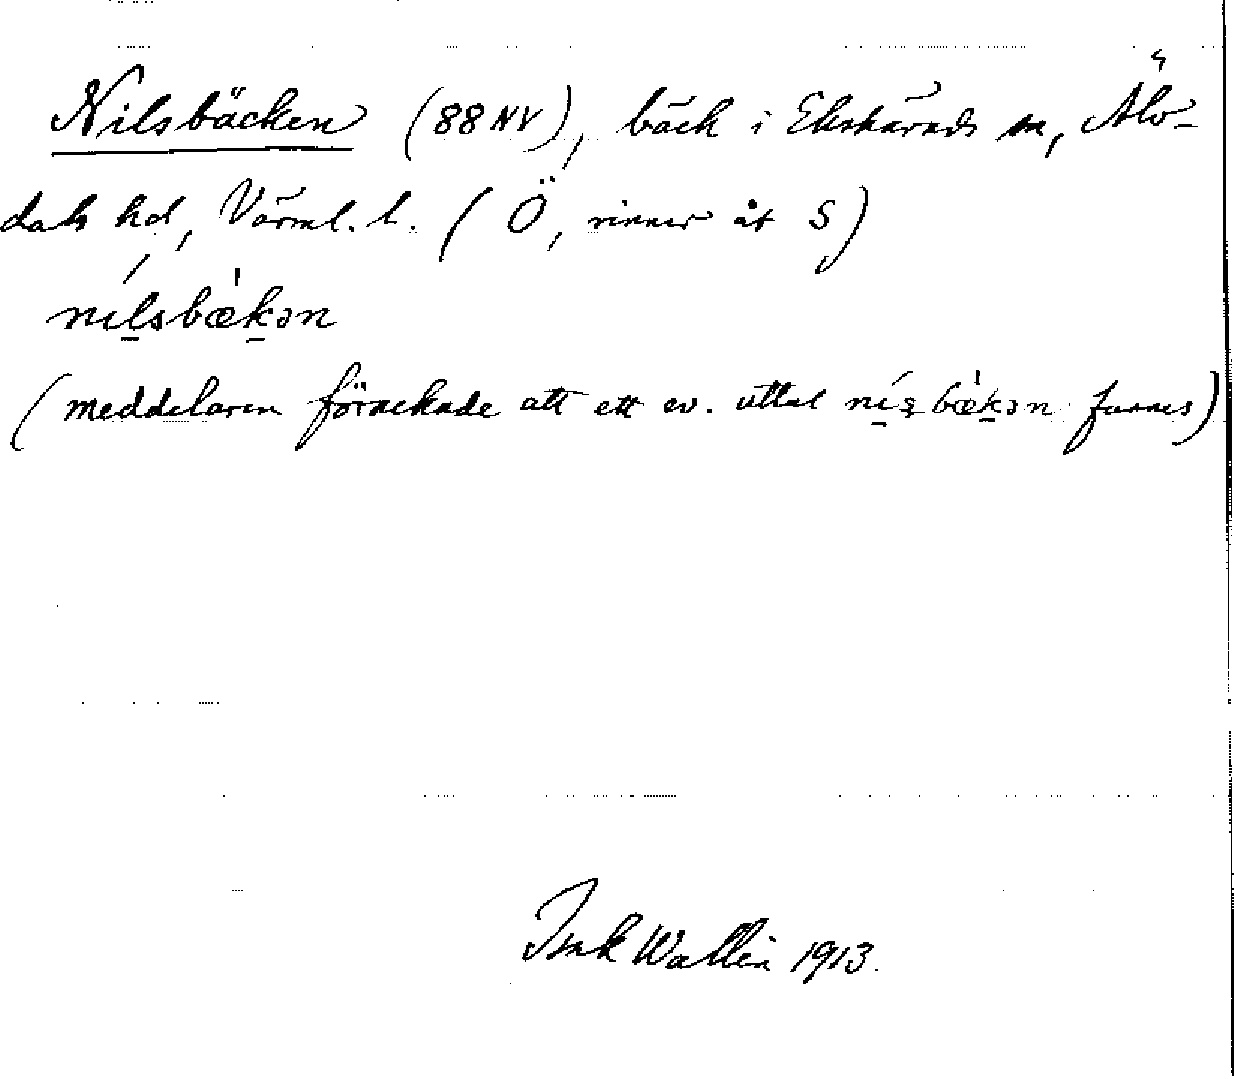 Nilsbäcken (88 NV), bäck i Ekshärads sn, Älv-
dals hd, Värml. l. (Ö, rinner åt S)
nílsbæ̀kən
(meddelaren förnekade att ett ev. uttal ní̱s̱bæ̀kən fanns)
Isak Wallin 1913.